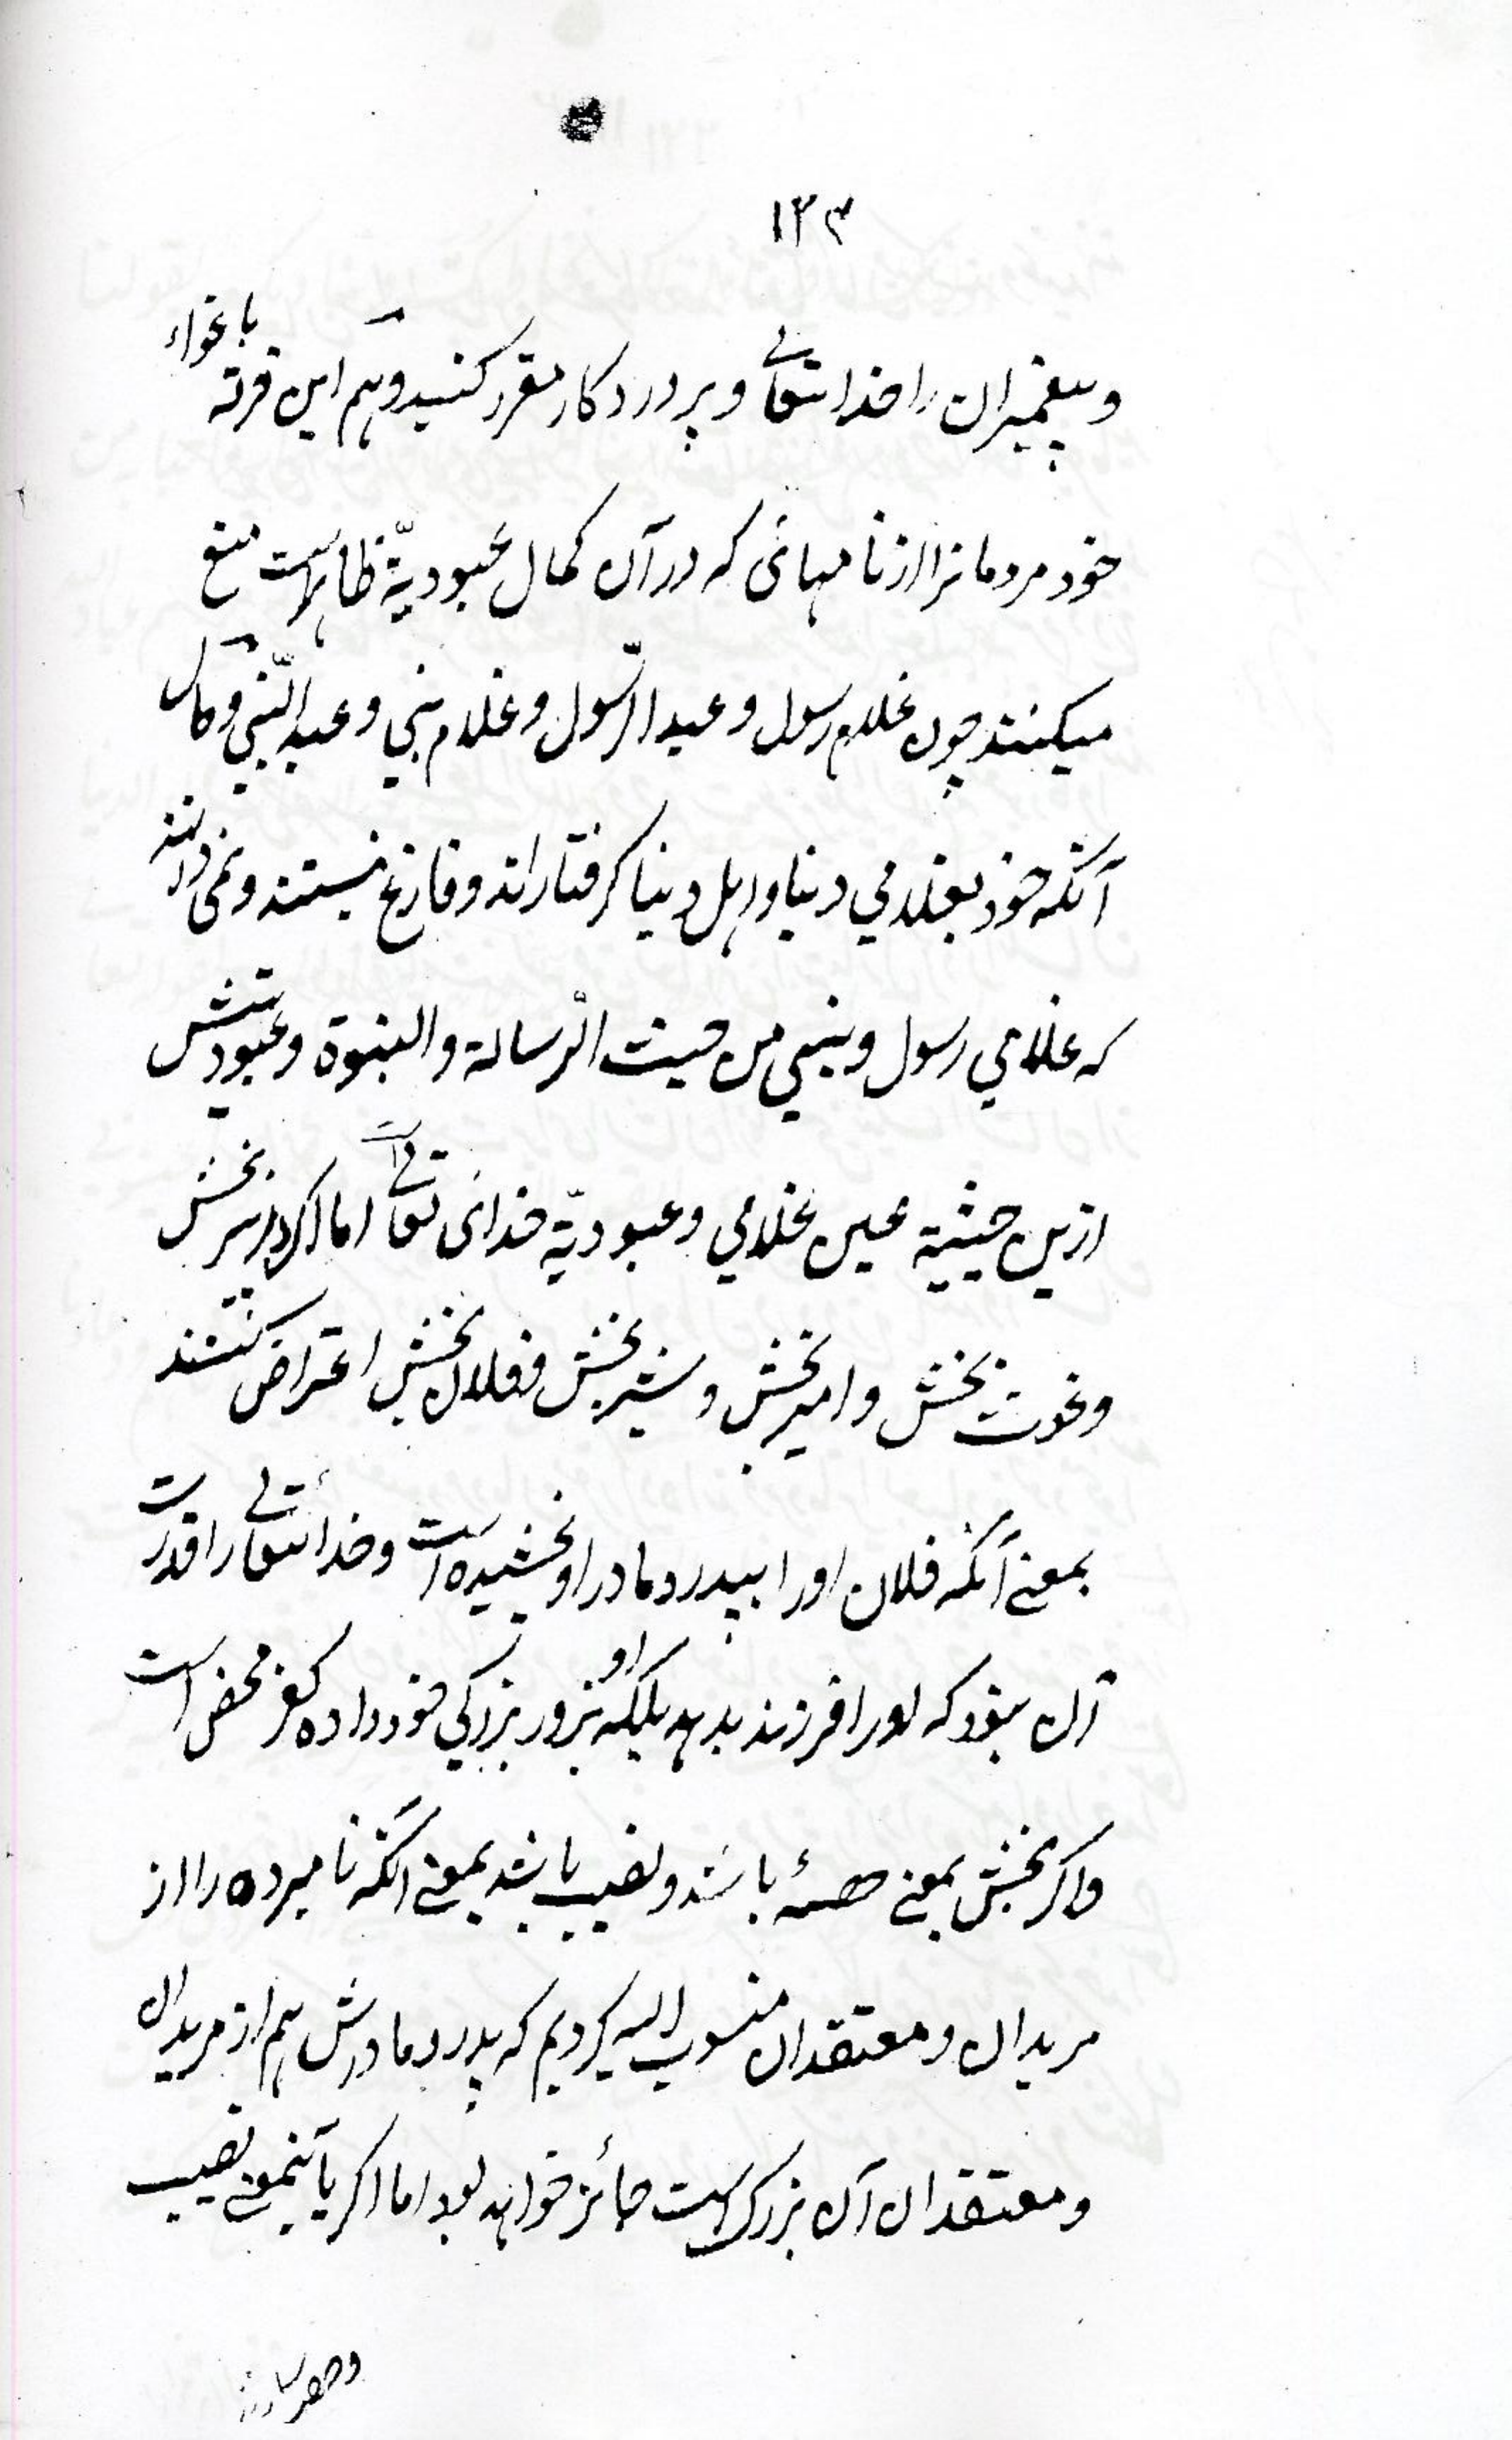 ۱۲۳
و پیغمبران را خدا تعالی و پروردگار مقرر کنید و هم این فرقه باغواء
خود مردمانرا از نامهائی که در آن کمال عبودیّة ظاهرست منع
میکنند چون غلام رسول و عبد الرّسول و غلام نبی و عبد النّبی و حال
آنکه خود بغلامی دنیا و اهل دنیا گرفتار اند و فارغ نیستند و نمی دانند
که غلامی رسول و نبی من حیث الرّسالة والنبوة و عبودیتش
ازین حیثیة عین غلامی و عبودیّة خدای تعالی است اما اگر بر پیر بخش
و غوث بخش و امیر بخش و شیر بخش و فلان بخش اعتراض کنند
بمعنی آنکه فلان او را بپدر و مادر او بخشیده است و خدا تعالی را قدرت
آن نبود که او را فرزند بدهد بلکه او بزور بزرگی خود داده کفر محض است
و اگر بخش بمعنی حصه باشد و نصیب باشد بمعنی آنکه نامبرده را از
مریدان و معتقدان منسوب الیه کردیم که پدر و مادرش هم از مریدان
و معتقدان آن بزرگ است جائز خواهد بود اما اگر باینمعنی نصیب